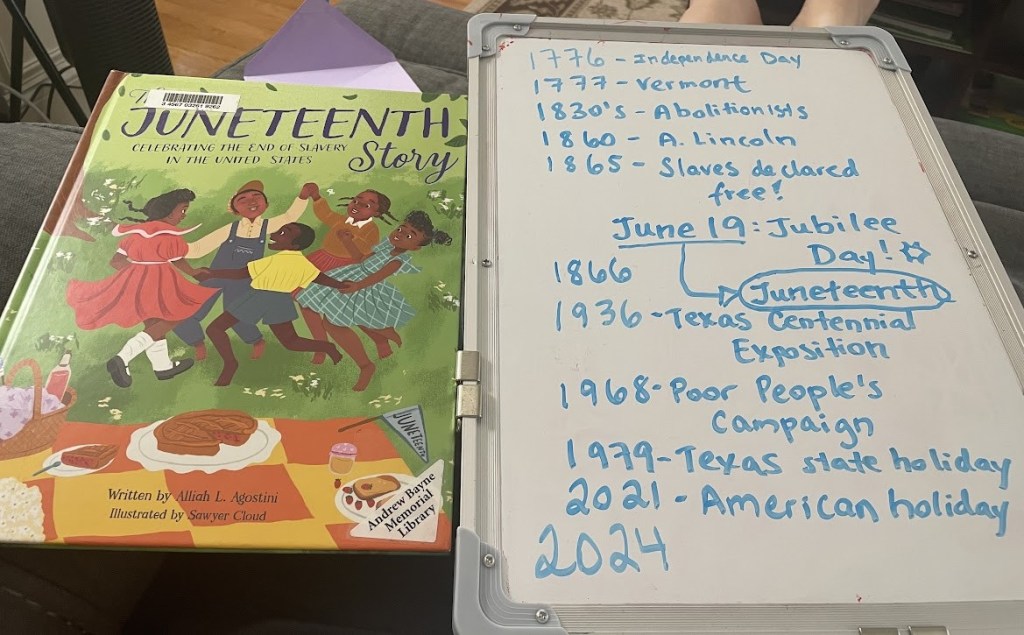 JUNETEENTH
CELEBRATING THE END OF SLAVERY
IN THE UNITED STATES
Story
JUNETEENTH
Written by Alliah L. Agostini
Illustrated by Sawyer Cloud
Andrew Bayne
Memorial
Library
1776 - Independence Day
1777 - Vermont
1830's - Abolitionists
1860 - A. Lincoln
1865 - Slaves declared
free!
June 19: Jubilee
Day!
1866
Juneteenth
1936 - Texas Centennial
Exposition
1968 - Poor People's
Campaign
1979 - Texas state holiday
2021 - American holiday
2024